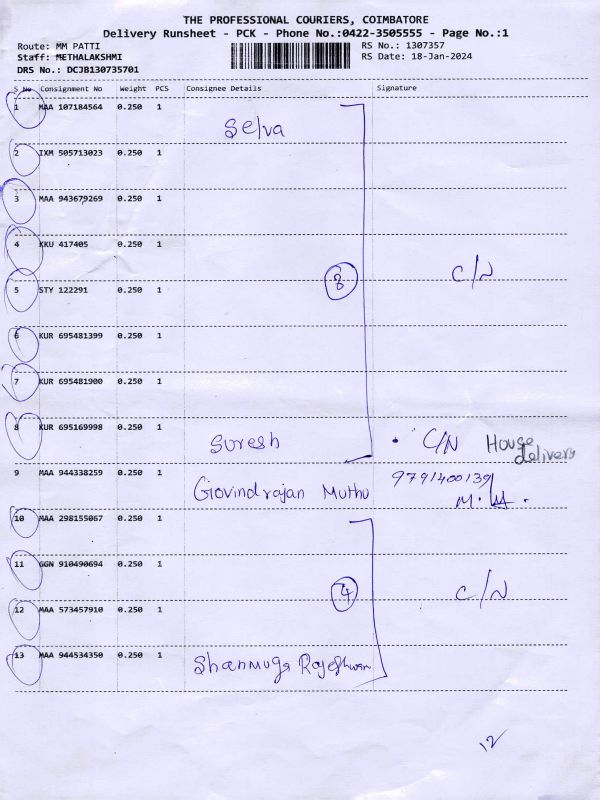 THE PROFESSIONAL COURIERS, COIMBATORE
Delivery Runsheet - PCK - Phone No.:0422-3505555 - Page No.:1
Route: MM PATTI RS No.: 1307357
Staff: METHALAKSHMI RS Date: 18-Jan-2024
DRS No.: DCJB130735701
S No Consignment No Weight PCS Consignee Details Signature
1 MAA 107184564 0.250 1 Selva
2 IXM 505713023 0.250 1
3 MAA 943679269 0.250 1
4 KKU 417405 0.250 1 C/N
5 STY 122291 0.250 1 8
6 KUR 695481399 0.250 1
7 KUR 695481900 0.250 1
8 KUR 695169998 0.250 1 Suresh C/N House delivery
9 MAA 944338259 0.250 1 Giovindrajan Muthu 9791400139
M.
10 MAA 298155067 0.250 1
11 GGN 910490694 0.250 1 4 C/N
12 MAA 573457910 0.250 1
13 MAA 944534350 0.250 1 Shanmuga Rajeshwari
12